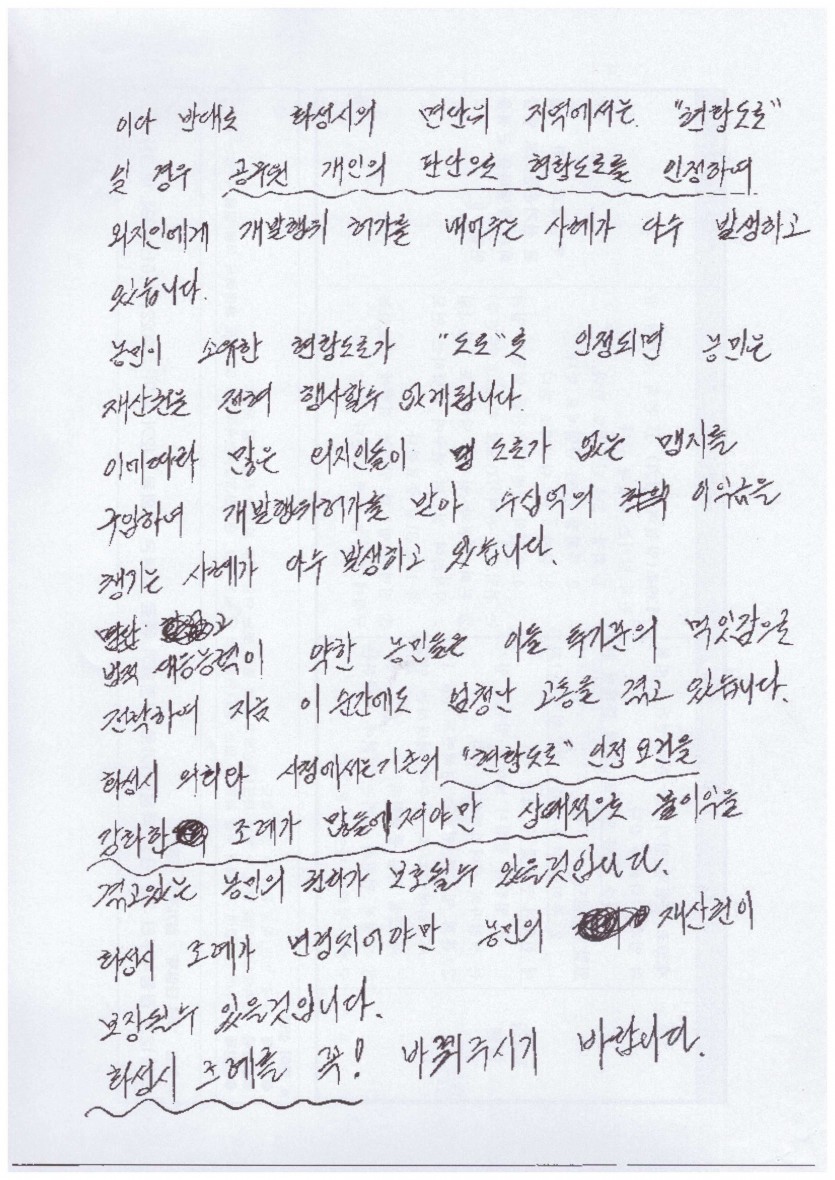 이와 반대로 화성시의 면단위 지역에서는 "현황도로"
일 경우 공무원 개인의 판단으로 현황도로를 인정하여
외지인에게 개발행위 허가를 내어주는 사례가 다수 발생하고
있습니다.
농민이 소유한 현황도로가 "도로"로 인정되면 농민은
재산권을 전혀 행사할수 없게됩니다.
이에따라 많은 외지인들이 도로가 없는 맹지를
구입하여 개발행위허가를 받아 수십억의 이익금을
챙기는 사례가 다수 발생하고 있습니다.
법적 대응능력이 약한 농민들은 이들 투기꾼의 먹잇감으로
전락하여 지금 이 순간에도 엄청난 고통을 겪고 있습니다.
화성시 의회와 시정에서는 기존의 "현황도로" 인정 요건을
강화한 조례가 만들어져야만 상대적으로 불이익을
겪고있는 농민의 권리가 보호될수 있을것입니다.
화성시 조례가 변경되어야만 농민의 재산권이
보장될수 있을것입니다.
화성시 조례를 꼭! 바꿔주시기 바랍니다.